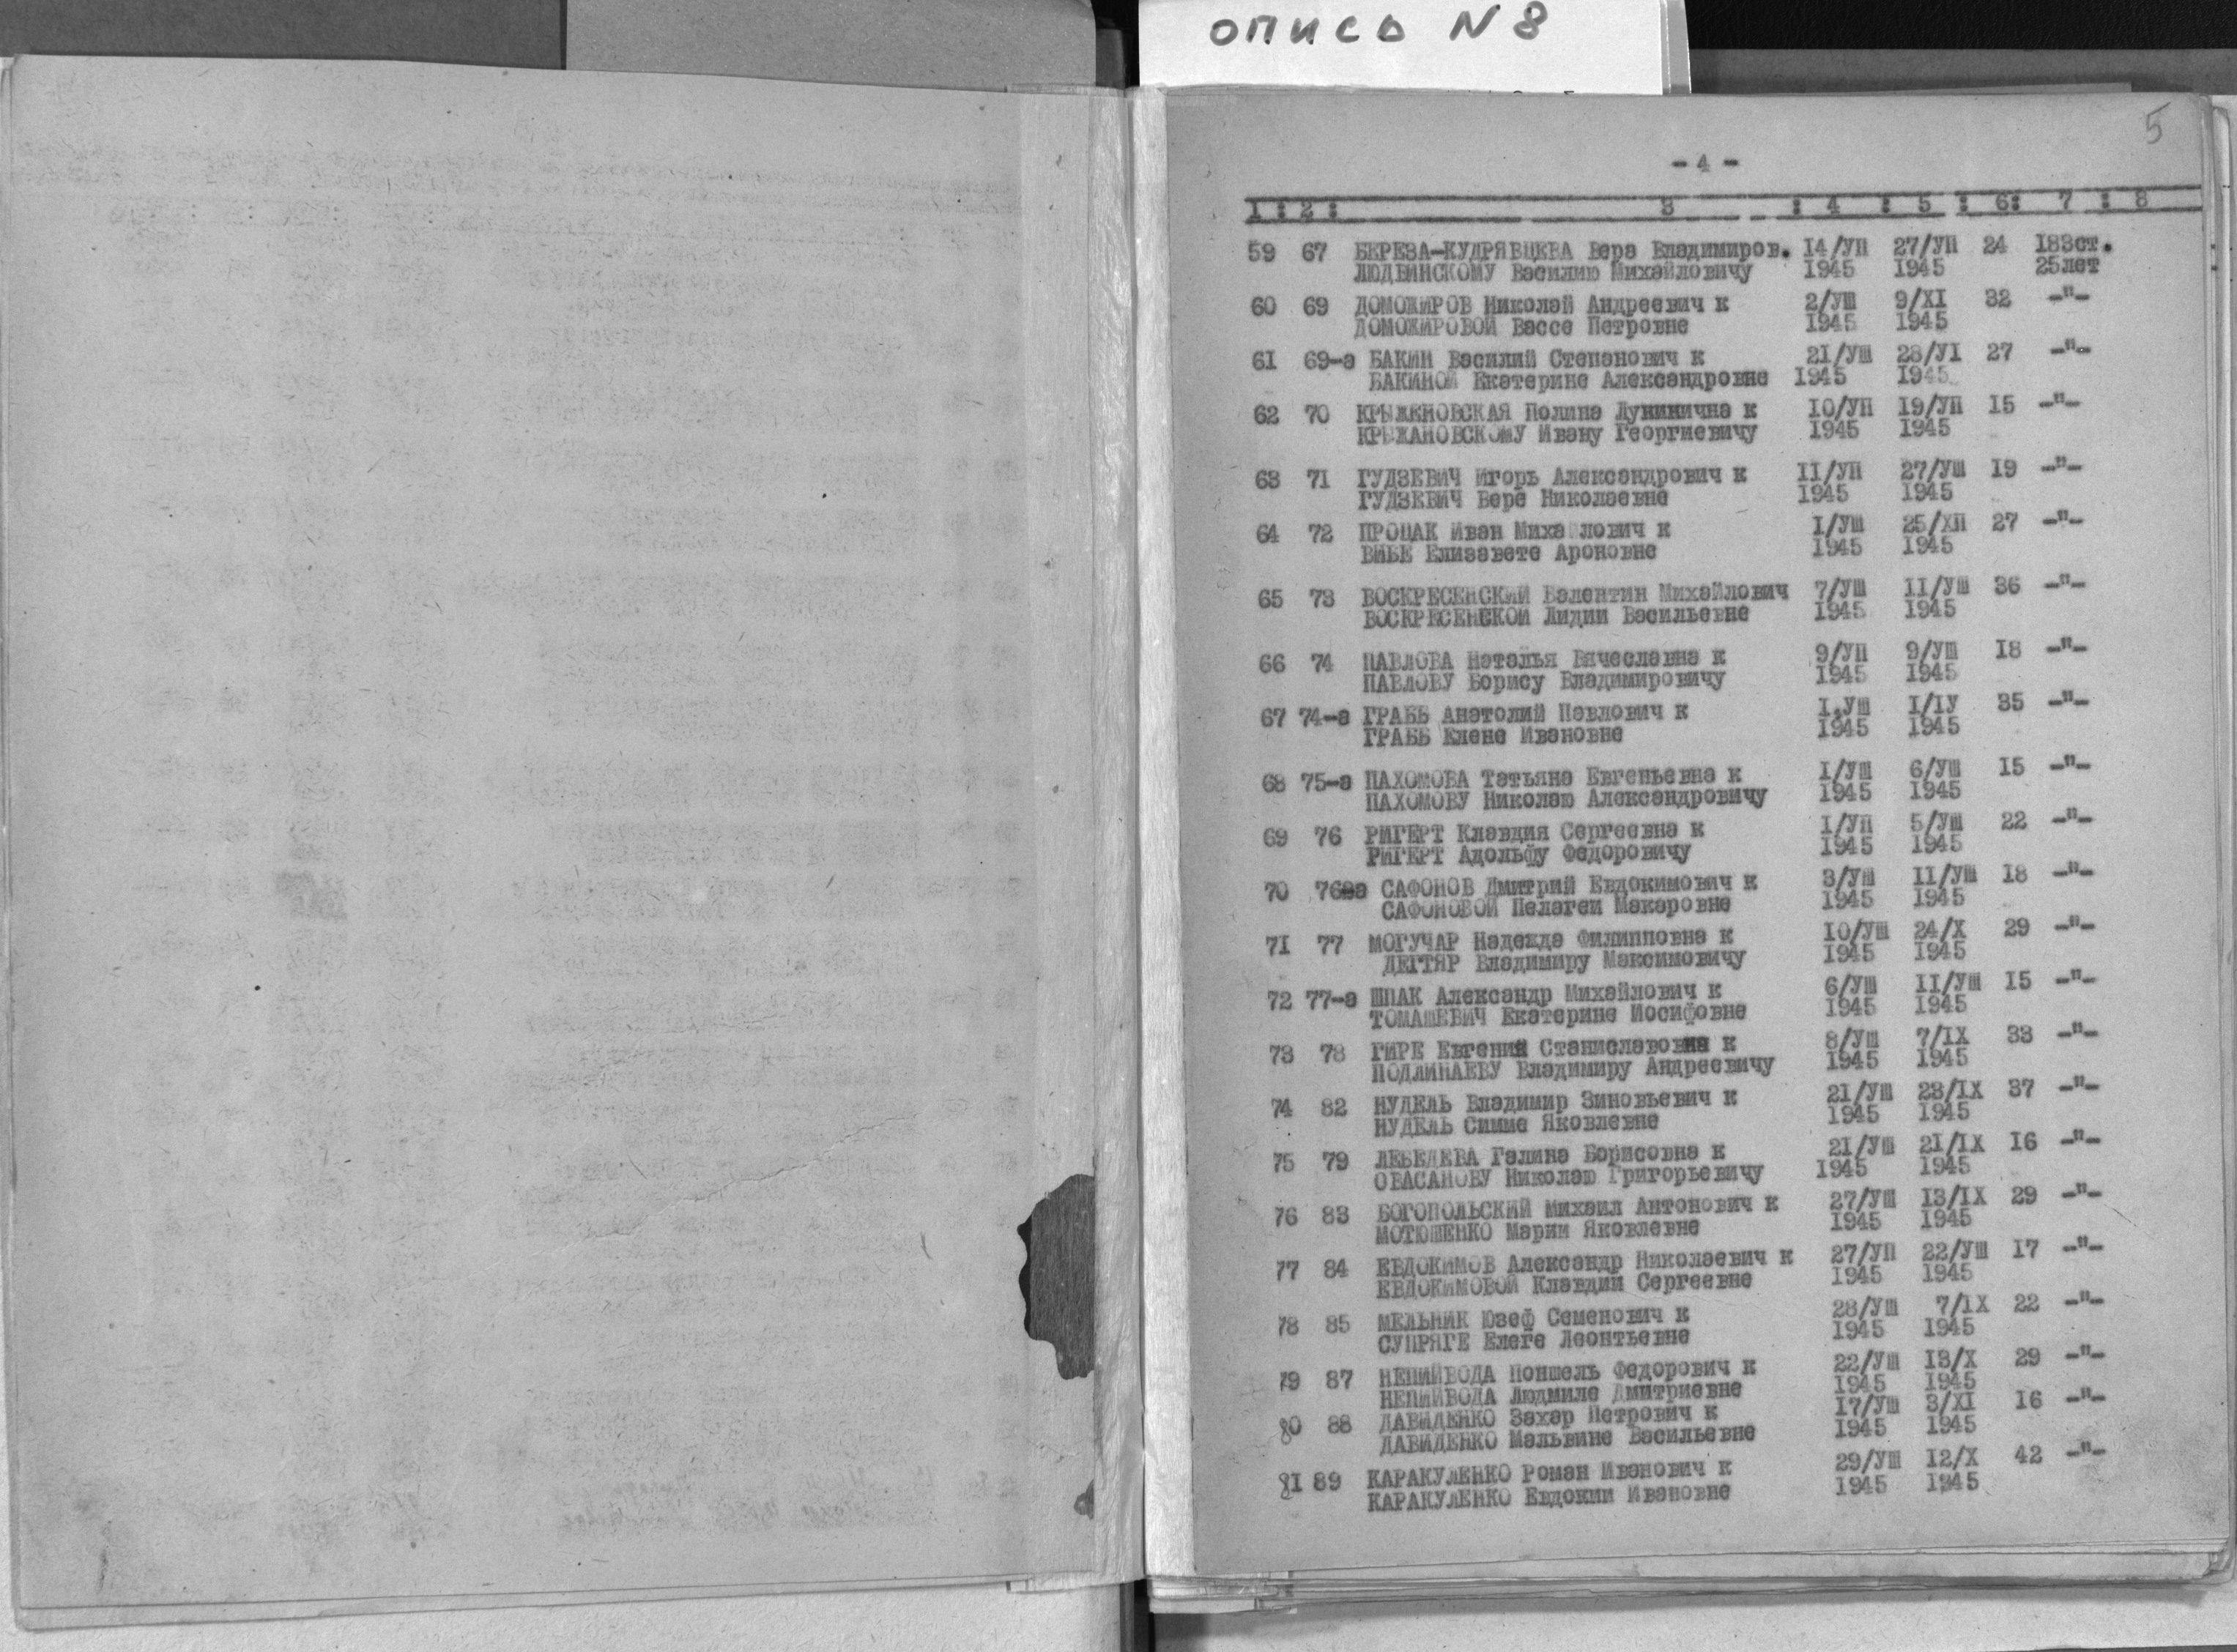 опись N 8
5
- 4 -
1 : 2 : 3 : 4 : 5 : 6: 7 : 8
59 67 БЕРЕЗА-КУДРЯВЦЕВА Вера Владимиров. 14/УП 27/УП 24 183ст.
ЛЮДВИНСКОМУ Василию Михайловичу 1945 1945 25лет
60 69 ДОМОЖИРОВ Николай Андреевич к 2/УШ 9/XI 32 -"-
ДОМОЖИРОВОЙ Вассе Петровне 1945 1945
61 69-а БАКИН Василий Степанович к 21/УШ 28/УІ 27 -"-
БАКИНОЙ Екатерине Александровне 1945 1945
62 70 КРЫЖЕНОВСКАЯ Полина Лукинична к 10/УП 19/УП 15 -"-
КРЫЖАНОВСКОМУ Ивану Георгиевичу 1945 1945
63 71 ГУДЗЕВИЧ Игорь Александрович к 11/УП 27/УШ 19 -"-
ГУДЗЕВИЧ Вере Николаевне 1945 1945
64 72 ПРОЦАК Иван Миха лович к 1/УШ 25/ХП 27 -"-
ВИЬЕ Елизавете Ароновне 1945 1945
65 73 ВОСКРЕСЕНСКИЙ Валентин Михайлович 7/УШ 11/УШ 36 -"-
ВОСКРЕСЕНСКОЙ Лидии Васильевне 1945 1945
66 74 ПАВЛОВА Наталья Вячеславна к 9/УП 9/УШ 18 -"-
ПАВЛОВУ Борису Владимировичу 1945 1945
67 74-а ГРАБЬ Анатолий Павлович к 1,УШ 1/ІУ 35 -"-
ГРАБЬ Елене Ивановне 1945 1945
68 75-а ПАХОМОВА Татьяна Евгеньевна к 1/УШ 6/УШ 15 -"-
ПАХОМОВУ Николаю Александровичу 1945 1945
69 76 РИГЕРТ Клавдия Сергеевна к 1/УП 5/УШ 22 -"-
РИГЕРТ Адольфу Федоровичу 1945 1945
70 76-а САФОНОВ Дмитрий Евдокимович к 3/УШ 11/УШ 18 -"-
САФОНОВОЙ Пелагеи Макаровне 1945 1945
71 77 МОГУЧАР Надежда Филипповна к 10/УШ 24/Х 29 -"-
ДЕГТЯР Владимиру Максимовичу 1945 1945
72 77-а ШПАК Александр Михайлович к 6/УШ 11/УШ 15 -"-
ТОМАШЕВИЧ Екатерине Иосифовне 1945 1945
73 78 ГИРЕ Евгения Станиславовна к 8/УШ 7/ІХ 33 -"-
ПОДЛИНАЕВУ Владимиру Андреевичу 1945 1945
74 82 НУДЕЛЬ Владимир Зиновьевич к 21/УШ 23/ІХ 37 -"-
НУДЕЛЬ Симме Яковлевне 1945 1945
75 79 ЛЕБЕДЕВА Галина Борисовна к 21/УШ 21/ІХ 16 -"-
ОВАСАНОВУ Николаю Григорьевичу 1945 1945
76 83 БОГОПОЛЬСКИЙ Михаил Антонович к 27/УШ 13/ІХ 29 -"-
МОТЮШЕНКО Марии Яковлевне 1945 1945
77 84 ЕВДОКИМОВ Александр Николаевич к 27/УП 22/УШ 17 -"-
ЕВДОКИМОВОЙ Клавдии Сергеевне 1945 1945
78 85 МЕЛЬНИК Юзеф Семенович к 28/УШ 7/ІХ 22 -"-
СУПРЯГЕ Елеге Леонтьевне 1945 1945
79 87 НЕПИЙВОДА Поншель Федорович к 22/УШ 13/Х 29 -"-
НЕПИЙВОДА Людмиле Дмитриевне 1945 1945
80 88 ДАВИДЕНКО Захар Петрович к 17/УШ 3/ХІ 16 -"-
ДАВИДЕНКО Мальвине Васильевне 1945 1945
81 89 КАРАКУЛЕНКО Роман Иванович к 29/УШ 12/Х 42 -"-
КАРАКУЛЕНКО Евдокии Ивановне 1945 1945